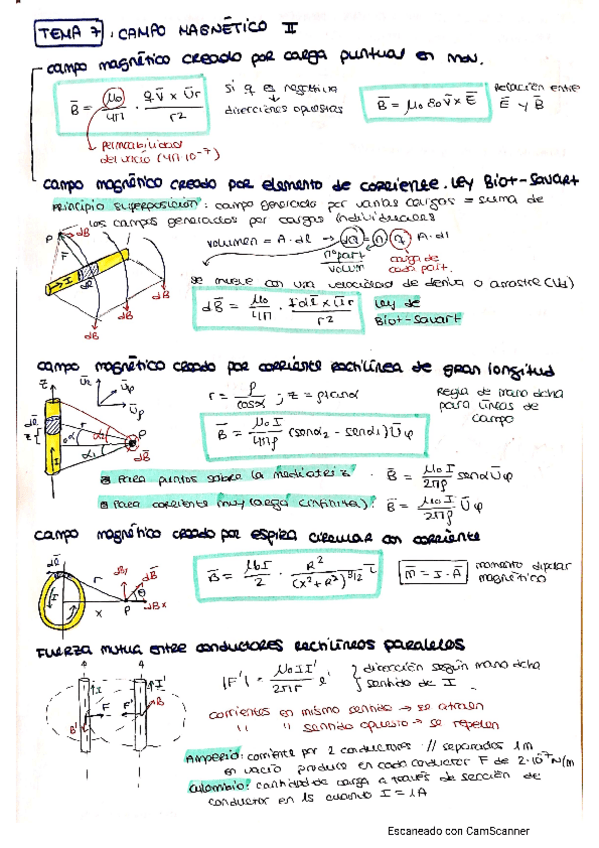 TEMA 7: CAMPO MAGNÉTICO II
campo magnético creado por carga puntual en mov.
B̄ = μ₀/4π · q v̄ × ūr / r²
si q es negativa → direcciones opuestas
B̄ = μ₀ ε₀ v̄ × Ē
Relación entre Ē y B̄
permeabilidad del vacío (4π·10⁻⁷)
campo magnético creado por elemento de corriente. Ley Biot-Savart
Principio superposición: campo generado por varias cargas = suma de
los campos generados por cargas individuales
volumen = A·dl → dq = n·q·A·dl
nº part / volum
carga de cada part.
se mueve con una velocidad de deriva o arrastre (Vd)
dB̄ = μ₀/4π · I dl̄ × ūr / r²
Ley de Biot-Savart
P
dB̄
I
dl
dB̄
dB̄
dB̄
campo magnético creado por corriente rectilínea de gran longitud
r = ρ/cosα ; z = ρ tanα
Regla de mano dcha para líneas de campo
B̄ = μ₀ I / 4πρ (senα₂ - senα₁) ūφ
Para puntos sobre la mediatriz · B̄ = μ₀ I / 2πρ senα ūφ
Para corriente muy larga (infinita): B̄ = μ₀ I / 2πρ ūφ
z
ūz
ūφ
ūρ
dl̄
z
r
α
α₂
α₁
ρ
P
dB̄
I
campo magnético creado por espira circular con corriente
B̄ = μ₀I/2 · R²/(x²+R²)^3/2 ī
m̄ = I·Ā
momento dipolar magnético
dl̄
r
I
x
P
dB̄
dBx
θ
Fuerza mutua entre conductores rectilíneos paralelos
|F'| = μ₀II'/2πr l'
dirección según mano dcha
sentido de I
corrientes en mismo sentido → se atraen
" " sentido opuesto → se repelen
I
I'
F
F'
B
B'
Amperio: corriente por 2 conductores // separados 1m
en vacío produce en cada conductor F de 2·10⁻⁷ N/m
Culombio: cantidad de carga a través de sección de
conductor en 1s cuando I = 1A
Escaneado con CamScanner